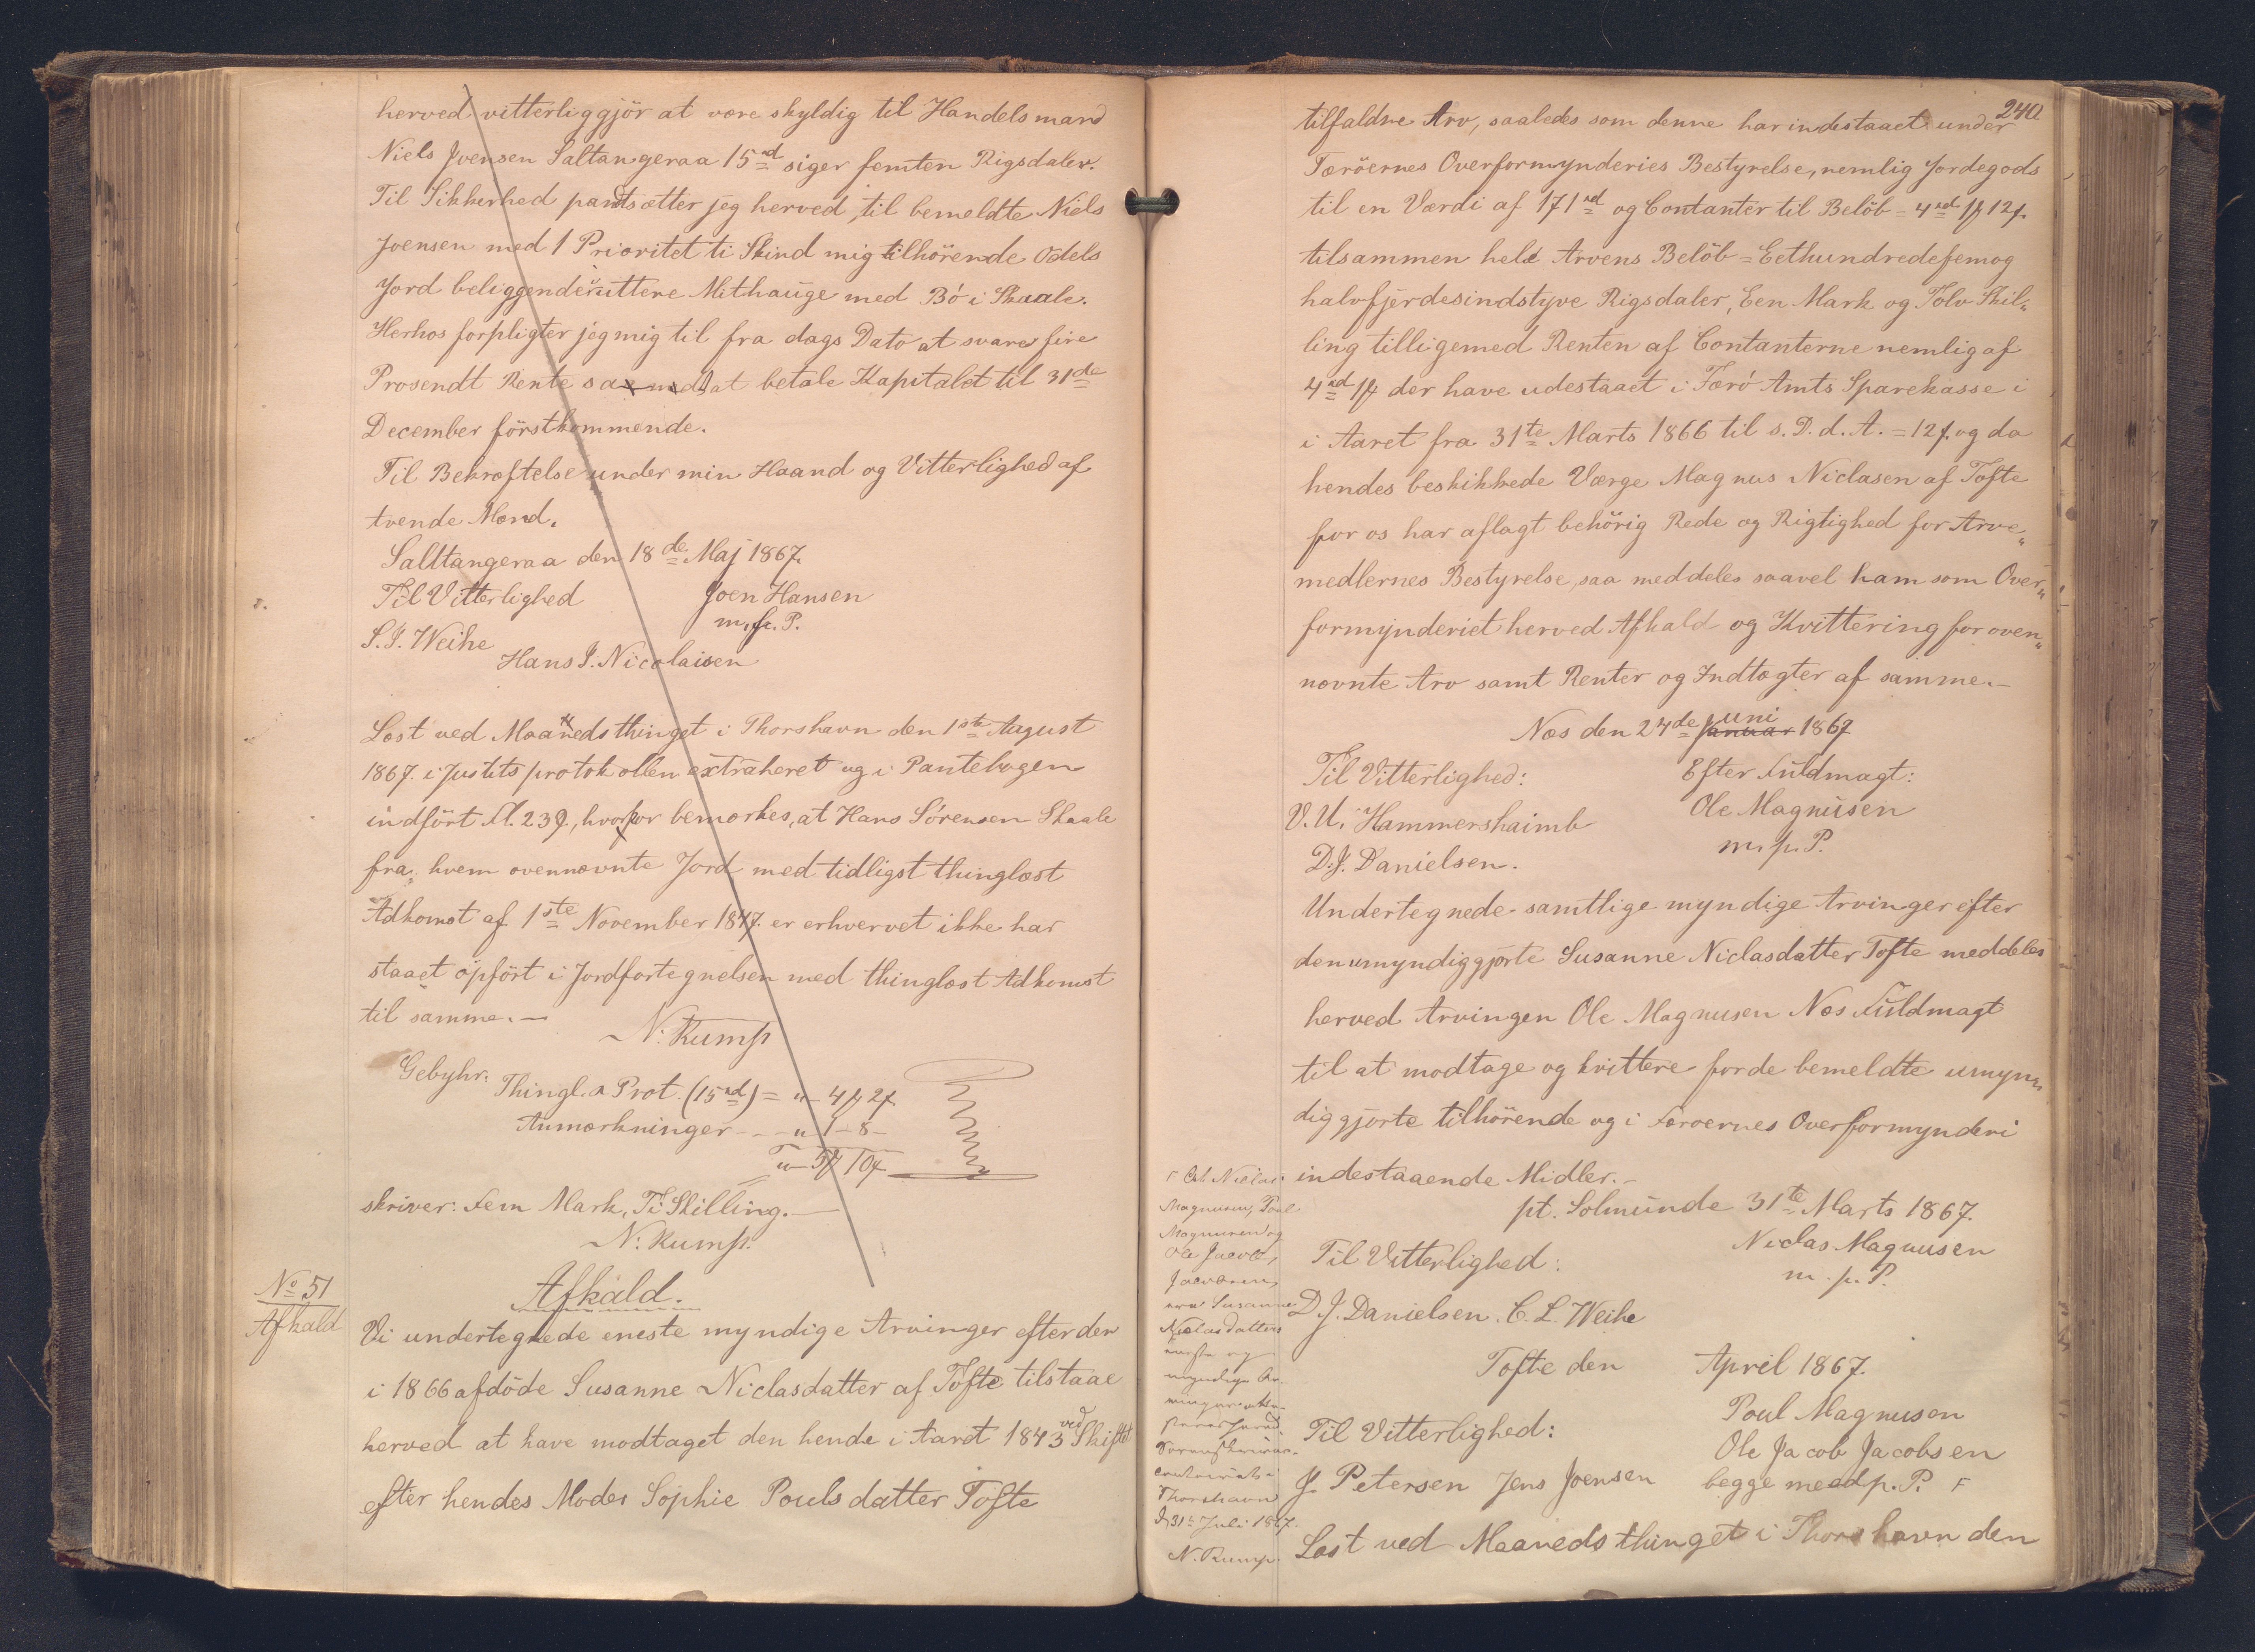 herved vitterliggjör at være skyldig til Handelsmand
Niels Joensen Saltangeraa 15 rd siger femten Rigsdaler.
Til Sikkerhed pantsætter jeg herved, til bemeldte Niels
Joensen med 1 Prioritet ti Skind mig tilhörende Odels
Jord beliggende uttere Mithauge med Bö i Skaale.
Herhos forpligter jeg mig til fra dags Dato at svare fire
Prosendt Rente at betale Kapitalet til 31de
December förstkommende.
Til Bekræftelse under min Haand og Vitterlighed af
tvende Mænd.
Salttangeraa den 18de Maj 1867.
Til Vitterlighed Joen Hansen
m. p. P.
S. J. Weihe
Hans J. Nicolaisen
Læst ved Maanedsthinget i Thorshavn den 1ste August
1867. i Justitsprotokollen extraheret og i Pantebogen
indfört fl. 239., hvorfor bemærkes, at Hans Sörensen Skaale
fra hvem ovennævnte Jord med tidligst thinglæst
Adkomst af 1ste November 1847. er erhvervet ikke har
staaet opfört i Jordfortegnelsen med thinglæst Adkomst
til samme. —
N. Rump
Gebyhr.
Thingl. & Prot. (15 rd) = " 4 # 2 ß
Anmærkninger - - " 1 - 8 -
" - 5 # 10 ß
skriver: Fem Mark, Ti Skilling. —
N. Rump.
No 51
Afkald
Afkald.
Vi undertegnede eneste myndige Arvinger efter den
i 1866 afdöde Susanne Niclasdatter af Tofte tilstaae
herved at have modtaget den hende i Aaret 1843 ved Skiftet
efter hendes Moder Sophie Poulsdatter Tofte
240
tilfaldne Arv, saaledes som denne har indestaaet under
Færöernes Overformynderies Bestyrelse, nemlig Jordegods
til en Værdi af 171 rd og Contanter til Belöb = 4 rd 1 # 12 ß.
tilsammen hele Arvens Belöb = Eethundredefemog
halvfjerdesindstyve Rigsdaler, Een Mark og Tolv Skil„
ling tilligemed Renten af Contanterne nemlig af
4 rd 1 # der have udestaaet i Færö Amts Sparekasse i
i Aaret fra 31te Marts 1866 til s. D. d. A. = 12 ß. og da
hendes beskikkede Værge Magnus Niclasen af Tofte
for os har aflagt behörig Rede og Rigtighed for Arve„
medlernes Bestyrelse, saa meddeles saavel ham som Over„
formynderiet herved Afkald og Kvittering for oven„
nævnte Arv samt Renter og Indtægter af samme. —
Næs den 24de Januar Juni 1867
Til Vitterlighed: Efter Fuldmagt:
V. U. Hammershaimb Ole Magnusen
D. J. Danielsen. m. p. P.
Undertegnede samtlige myndige Arvinger efter
den umyndiggjorte Susanne Niclasdatter Tofte meddeles
herved Arvingen Ole Magnusen Næs Fuldmagt
til at modtage og kvittere for de bemeldte umyn„
diggjorte tilhörende og i Færoernes Overformynderi
indestaaende Midler. —
pt. Solmunde 31te Marts 1867.
Til Vitterlighed: Niclas Magnusen
m. p. P.
D. J. Danielsen. C. L. Weihe
Tofte den April 1867.
Til Vitterlighed: Poul Magnusen
Ole Jacob Jacobsen
J. Petersen Jens Joensen begge med p. P. F
Læst ved Maanedsthinget i Thorshavn den
F At Niclas
Magnusen, Poul
Magnusen og
Ole Jacob
Jacobsen,
ere Susanne
Niclasdatters
eneste og
myndige Ar-
vinger
Sorenskriver-
contoiret i
Thorshavn
d. 31te Juli 1867.
N. Rump.